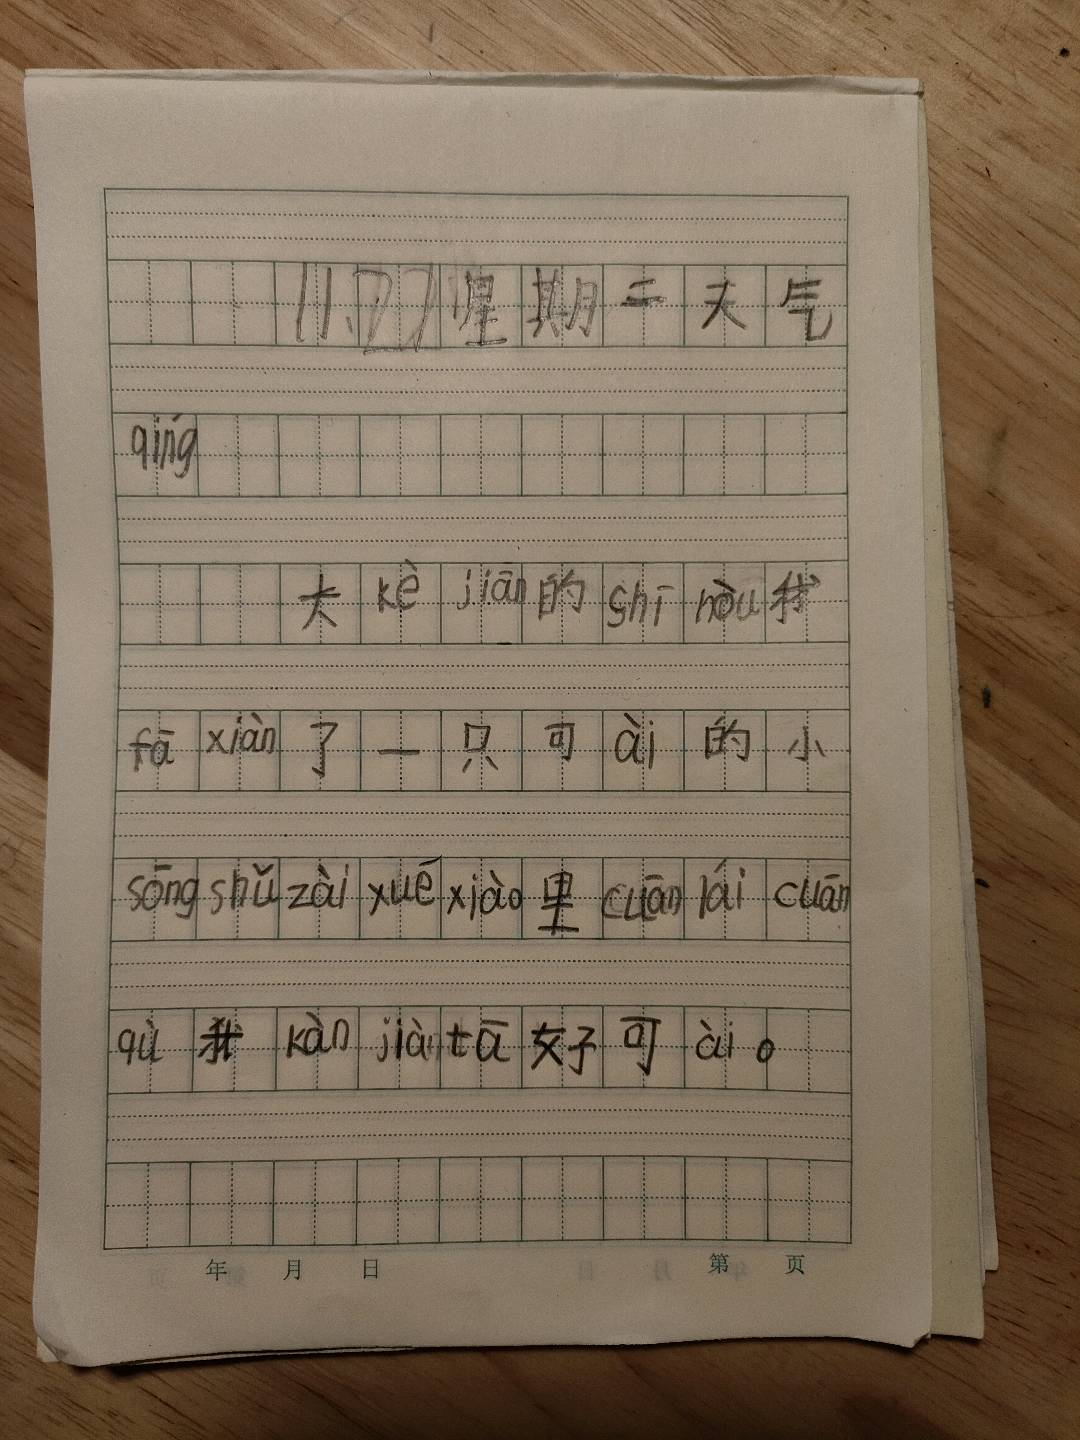 11.27 星期二天气
qíng
大 kè jiān 的 shī hòu 我
fā xiàn 了一只可 ài 的小
sōng shǔ zài xué xiào 里 cuān lái cuān
qù 我 kàn jiàn tā 好可 ài 。
年 月 日 第 页